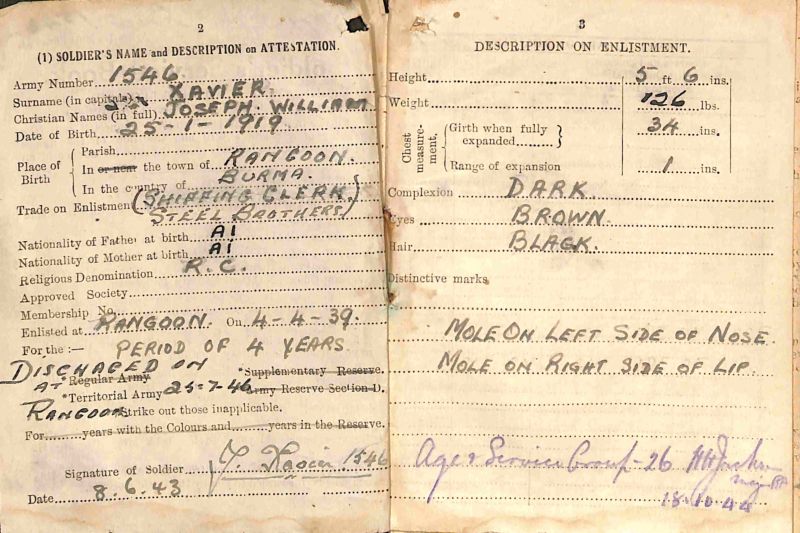 2
(1) SOLDIER'S NAME and DESCRIPTION on ATTESTATION.
Army Number 1546
Surname (in capitals) XAVIER
Christian Names (in full) JOSEPH. WILLIAM
Date of Birth 25-1-1919
Place of Birth
Parish
In or near the town of RANGOON.
In the country of BURMA.
Trade on Enlistment (SHIPPING CLERK
STEEL BROTHERS)
Nationality of Father at birth AI
Nationality of Mother at birth AI
Religious Denomination R.C.
Approved Society
Membership No.
Enlisted at RANGOON. On 4-4-39.
For the :— PERIOD OF 4 YEARS
DISCHAGED ON
AT *Regular Army *Supplementary Reserve.
*Territorial Army 25-7-46 *Army Reserve Section D.
RANGOON *Strike out those inapplicable.
For years with the Colours and years in the Reserve.
Signature of Soldier J. Xavier 1546
Date 8.6.43
3
DESCRIPTION ON ENLISTMENT.
Height 5 ft 6 ins.
Weight 126 lbs.
Chest measurement.
Girth when fully expanded 34 ins.
Range of expansion 1 ins.
Complexion DARK
Eyes BROWN.
Hair BLACK.
Distinctive marks
MOLE ON LEFT SIDE OF NOSE.
MOLE ON RIGHT SIDE OF LIP.
Age & Service Group - 26
18.10.44